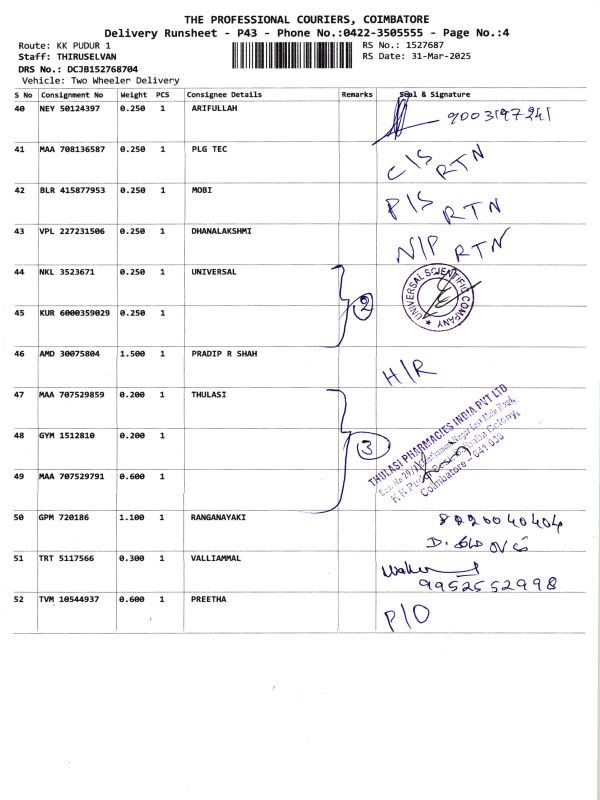 THE PROFESSIONAL COURIERS, COIMBATORE
Delivery Runsheet - P43 - Phone No.:0422-3505555 - Page No.:4
Route: KK PUDUR 1
RS No.: 1527687
Staff: THIRUSELVAN
RS Date: 31-Mar-2025
DRS No.: DCJB152768704
Vehicle: Two Wheeler Delivery
S No Consignment No Weight PCS Consignee Details Remarks Seal & Signature
40 NEY 50124397 0.250 1 ARIFULLAH
9003197241
41 MAA 708136587 0.250 1 PLG TEC C/S RTN
42 BLR 415877953 0.250 1 MOBI P/S RTN
43 VPL 227231506 0.250 1 DHANALAKSHMI N/P RTN
44 NKL 3523671 0.250 1 UNIVERSAL
UNIVERSAL SCIENTIFIC COMPANY
2
45 KUR 6000359029 0.250 1
46 AMD 30075804 1.500 1 PRADIP R SHAH H/R
47 MAA 707529859 0.200 1 THULASI
THULASI PHARMACIES INDIA PVT LTD
Coimbatore - 641 038
48 GYM 1512810 0.200 1
3
49 MAA 707529791 0.600 1
50 GPM 720186 1.100 1 RANGANAYAKI 8220040404
51 TRT 5117566 0.300 1 VALLIAMMAL
9952552998
52 TVM 10544937 0.600 1 PREETHA P/O